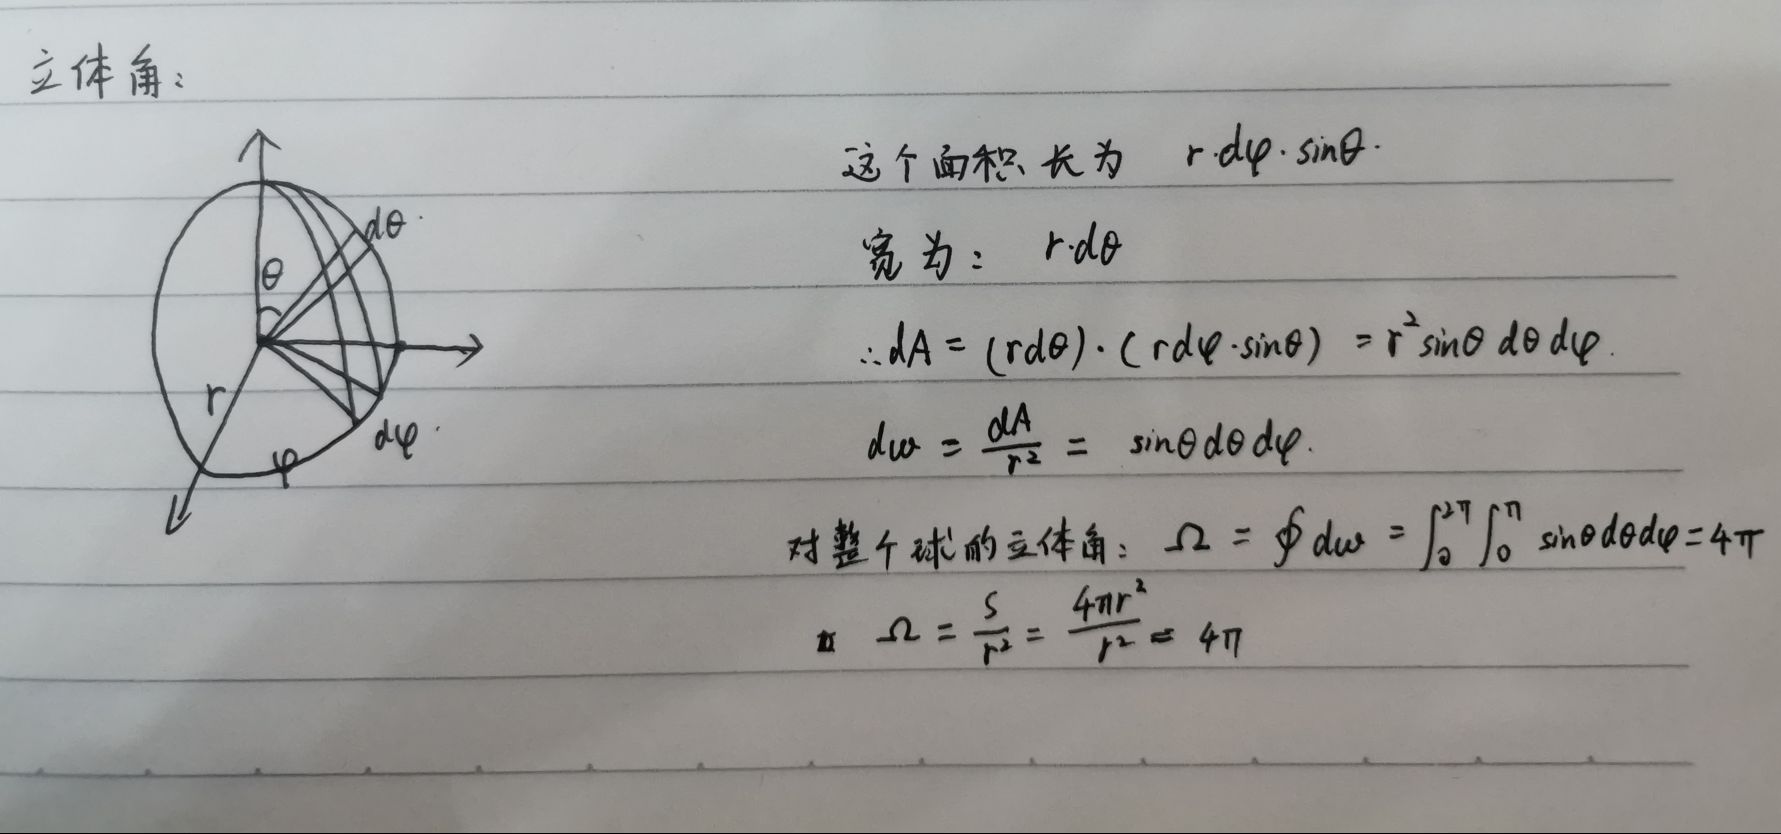 立体角:
dθ
θ
r
dφ
φ
这个面积长为 r·dφ·sinθ.
宽为: r·dθ
∴dA = (rdθ)·(rdφ·sinθ) = r²sinθ dθ dφ.
dω = dA/r² = sinθdθdφ.
对整个球的立体角: Ω = ∮dω = ∫₀^2π ∫₀^π sinθdθdφ = 4π
Ω = S/r² = 4πr²/r² = 4π